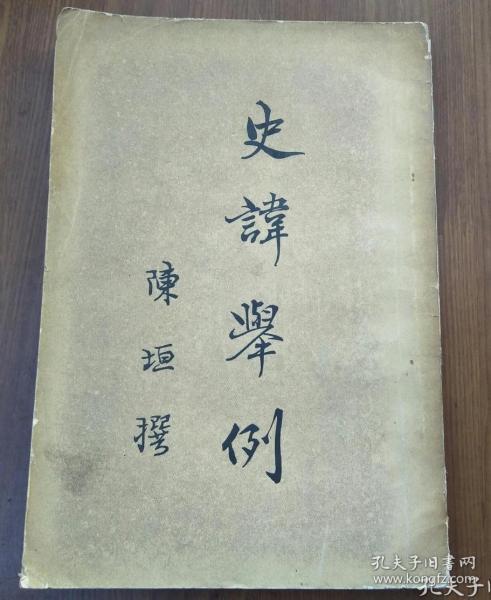 史諱舉例
陳垣撰
孔夫子旧书网
www.kongfz.com
孔夫子旧